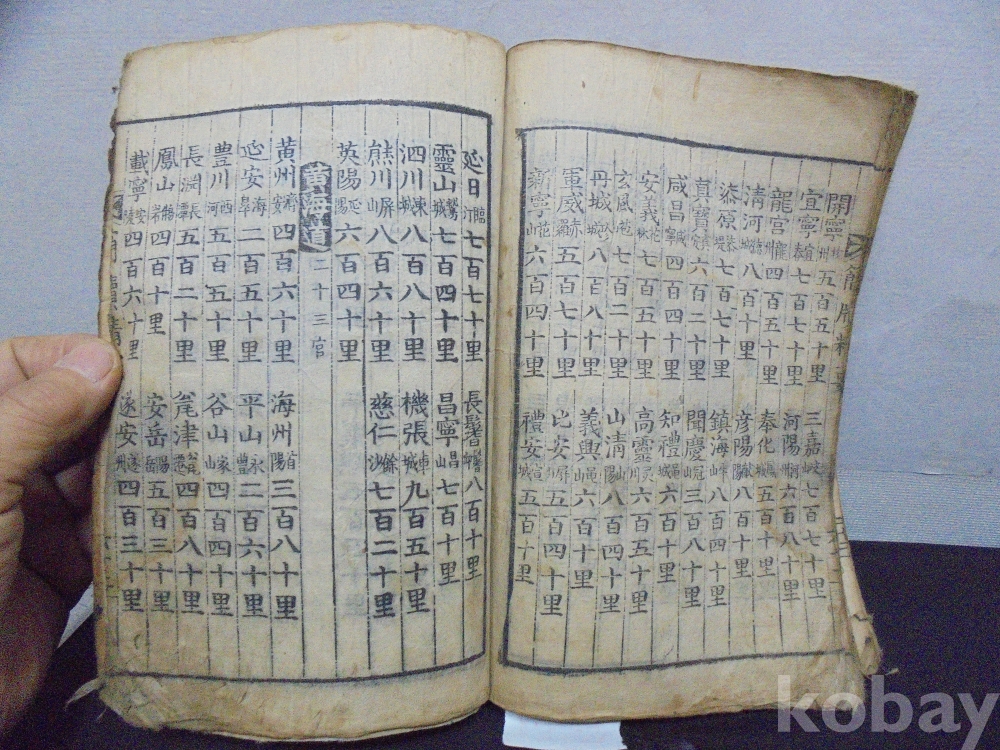 開寧 州五百五十里 三嘉岐山七百七十里
宜寧宜春七百七十里 河陽 州六百八十里
龍宮龍州四百五十里 奉化 城五百十里
淸河 城八百十里 彦陽 陽八百十里
漆原 七百十里 鎭海牛山八百四十里
眞寶 六百十里 聞慶冠山三百八十里
咸昌咸寧四百十里 知禮 城六百十里
安義花林七百十里 高靈 川六百五十里
玄風苞山七百二十里 山淸山陽八百四十里
丹城 城八百八十里 義興 山六百十里
軍威赤羅五百七十里 比安屛山五百四十里
新寧花山六百四十里 禮安宣城五百十里
延日臨汀七百七十里 長鬐 八百十里
靈山鷲城七百四十里 昌寧昌山七百十里
泗川東城八百十里 機張車城九百五十里
熊川屛山八百六十里 慈仁餘沙七百二十里
英陽延陽六百四十里
黃海道 二十三官
黃州齊安四百六十里 海州首陽三百八十里
延安海皐二百五十里 平山永豊二百六十里
豊川西河五百五十里 谷山象山四百四十里
長淵長潭五百二十里 瓮津瓮遷四百八十里
鳳山 四百十里 安岳陽岳五百三十里
載寧安陵四百六十里 遂安遂州四百三十里